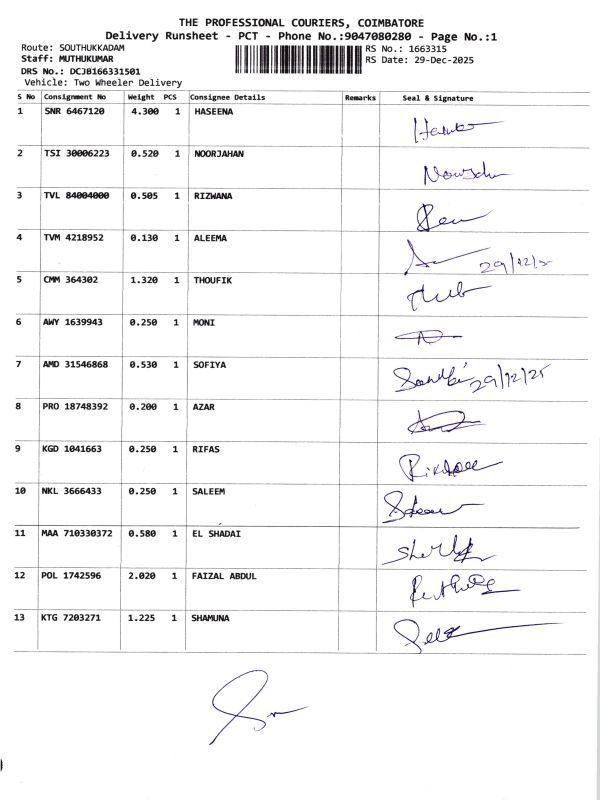 THE PROFESSIONAL COURIERS, COIMBATORE
Delivery Runsheet - PCT - Phone No.:9047080280 - Page No.:1
Route: SOUTHUKKADAM
RS No.: 1663315
Staff: MUTHUKUMAR
RS Date: 29-Dec-2025
DRS No.: DCJB166331501
Vehicle: Two Wheeler Delivery
S No Consignment No Weight PCS Consignee Details Remarks Seal & Signature
1 SNR 6467120 4.300 1 HASEENA
2 TSI 30006223 0.520 1 NOORJAHAN
3 TVL 84004000 0.505 1 RIZWANA
4 TVM 4218952 0.130 1 ALEEMA 29/12/25
5 CMM 364302 1.320 1 THOUFIK
6 AWY 1639943 0.250 1 MONI
7 AMD 31546868 0.530 1 SOFIYA 29/12/25
8 PRO 18748392 0.200 1 AZAR
9 KGD 1041663 0.250 1 RIFAS
10 NKL 3666433 0.250 1 SALEEM
11 MAA 710330372 0.580 1 EL SHADAI
12 POL 1742596 2.020 1 FAIZAL ABDUL
13 KTG 7203271 1.225 1 SHAMUNA